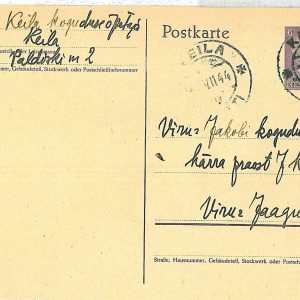 Keila koguduseõpetaja
Keila
Paldiski m 2
Straße, Hausnummer, Gebäudeteil, Stockwerk oder Postschließfachnummer
Postkarte
6
KEILA
VII 44
Viru-Jakobi kogudus
härra praost J. K
Viru-Jaagu
Straße, Hausnummer, Gebäudeteil, Stockwerk oder Postsch